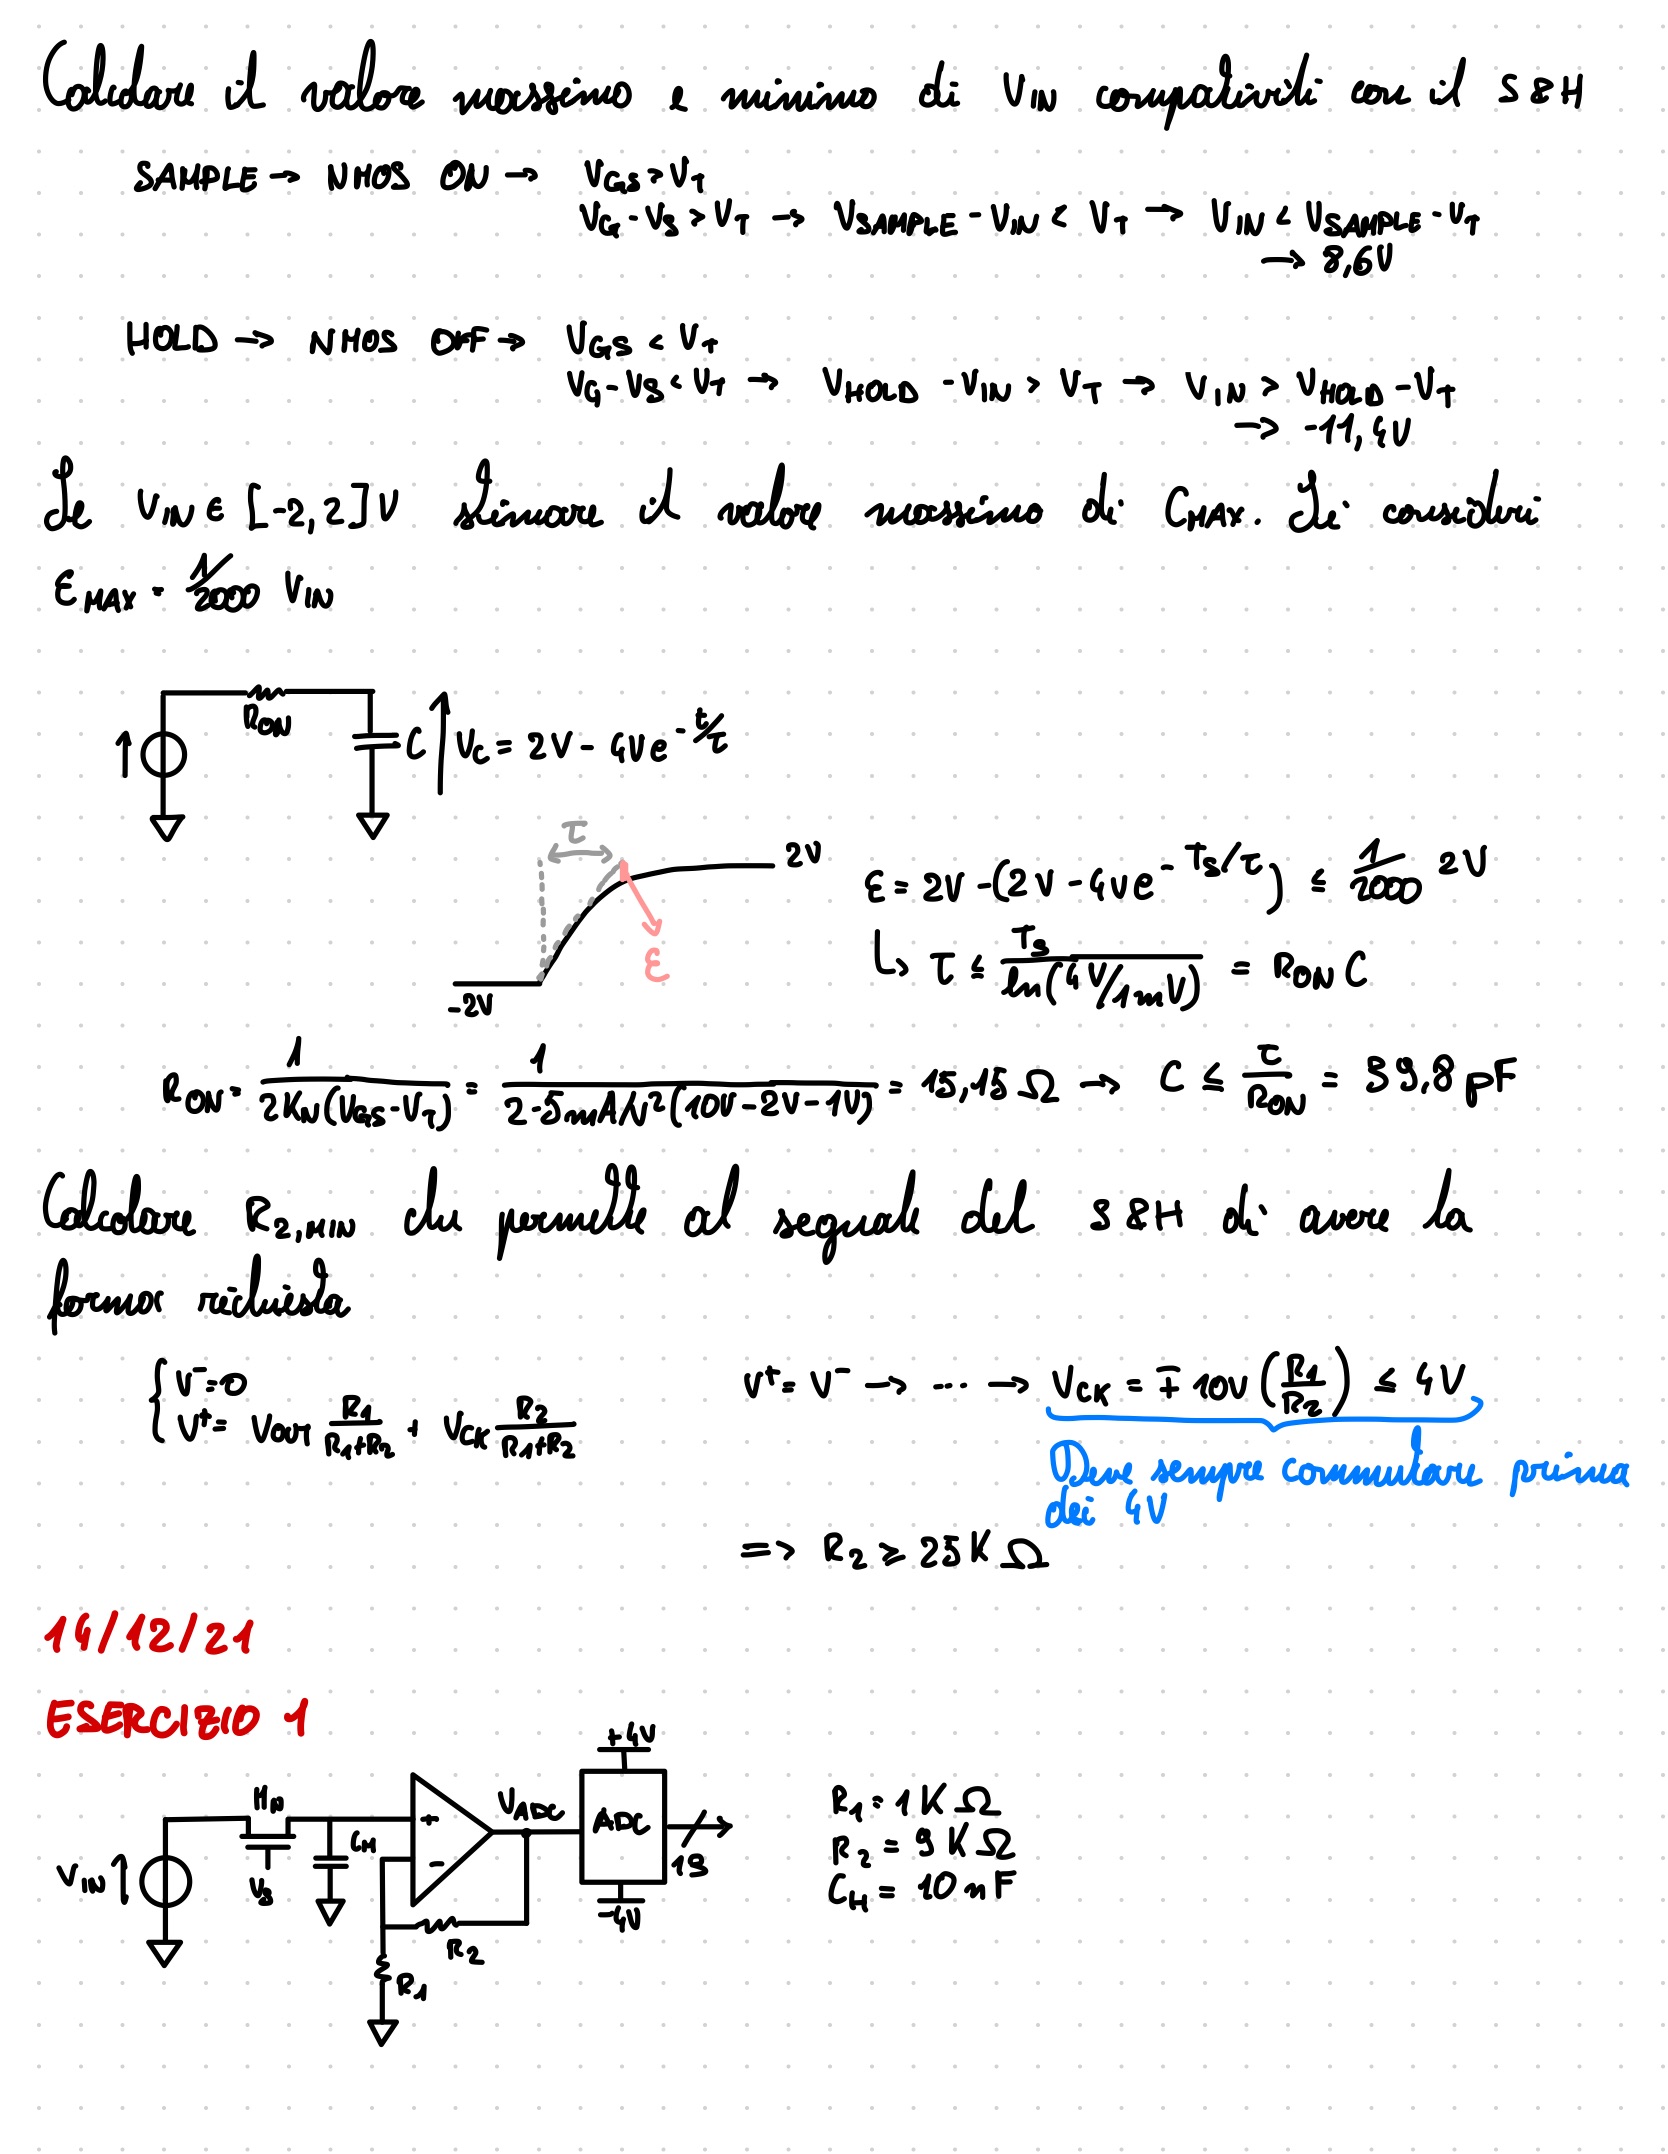 Calcolare il valore massimo e minimo di VIN compatibili con il S&H
SAMPLE → NMOS ON → VGS > VT
VG - VS > VT → VSAMPLE - VIN < VT → VIN < VSAMPLE - VT
→ 8,6V
HOLD → NMOS OFF → VGS < VT
VG - VS < VT → VHOLD - VIN > VT → VIN > VHOLD - VT
→ -11,4V
Se VIN ∈ [-2,2]V stimare il valore massimo di CMAX. Si consideri
EMAX = 1/2000 VIN
RON
C
VC = 2V - 4V e^-t/τ
τ
2V
ε
-2V
ε = 2V - (2V - 4V e^-TS/τ) ≤ 1/2000 2V
↳ τ ≤ TS / ln(4V/1mV) = RON C
RON = 1 / 2KN(VGS - VT) = 1 / 2·5mA/V²(10V - 2V - 1V) = 15,15 Ω → C ≤ τ/RON = 39,8 pF
Calcolare R2,MIN che permette al segnale del S&H di avere la
forma richiesta
V⁻ = 0
V⁺ = VOUT R1/R1+R2 + VCK R2/R1+R2
V⁺ = V⁻ → ... → VCK = ∓ 10V (R1/R2) ≤ 4V
Deve sempre commutare prima
dei 4V
=> R2 ≥ 25KΩ
14/12/21
ESERCIZIO 1
+4V
MN
CH
VADC
ADC
VIN
VS
+
-
-4V
R2
R1
R1 = 1KΩ
R2 = 9KΩ
CH = 10nF